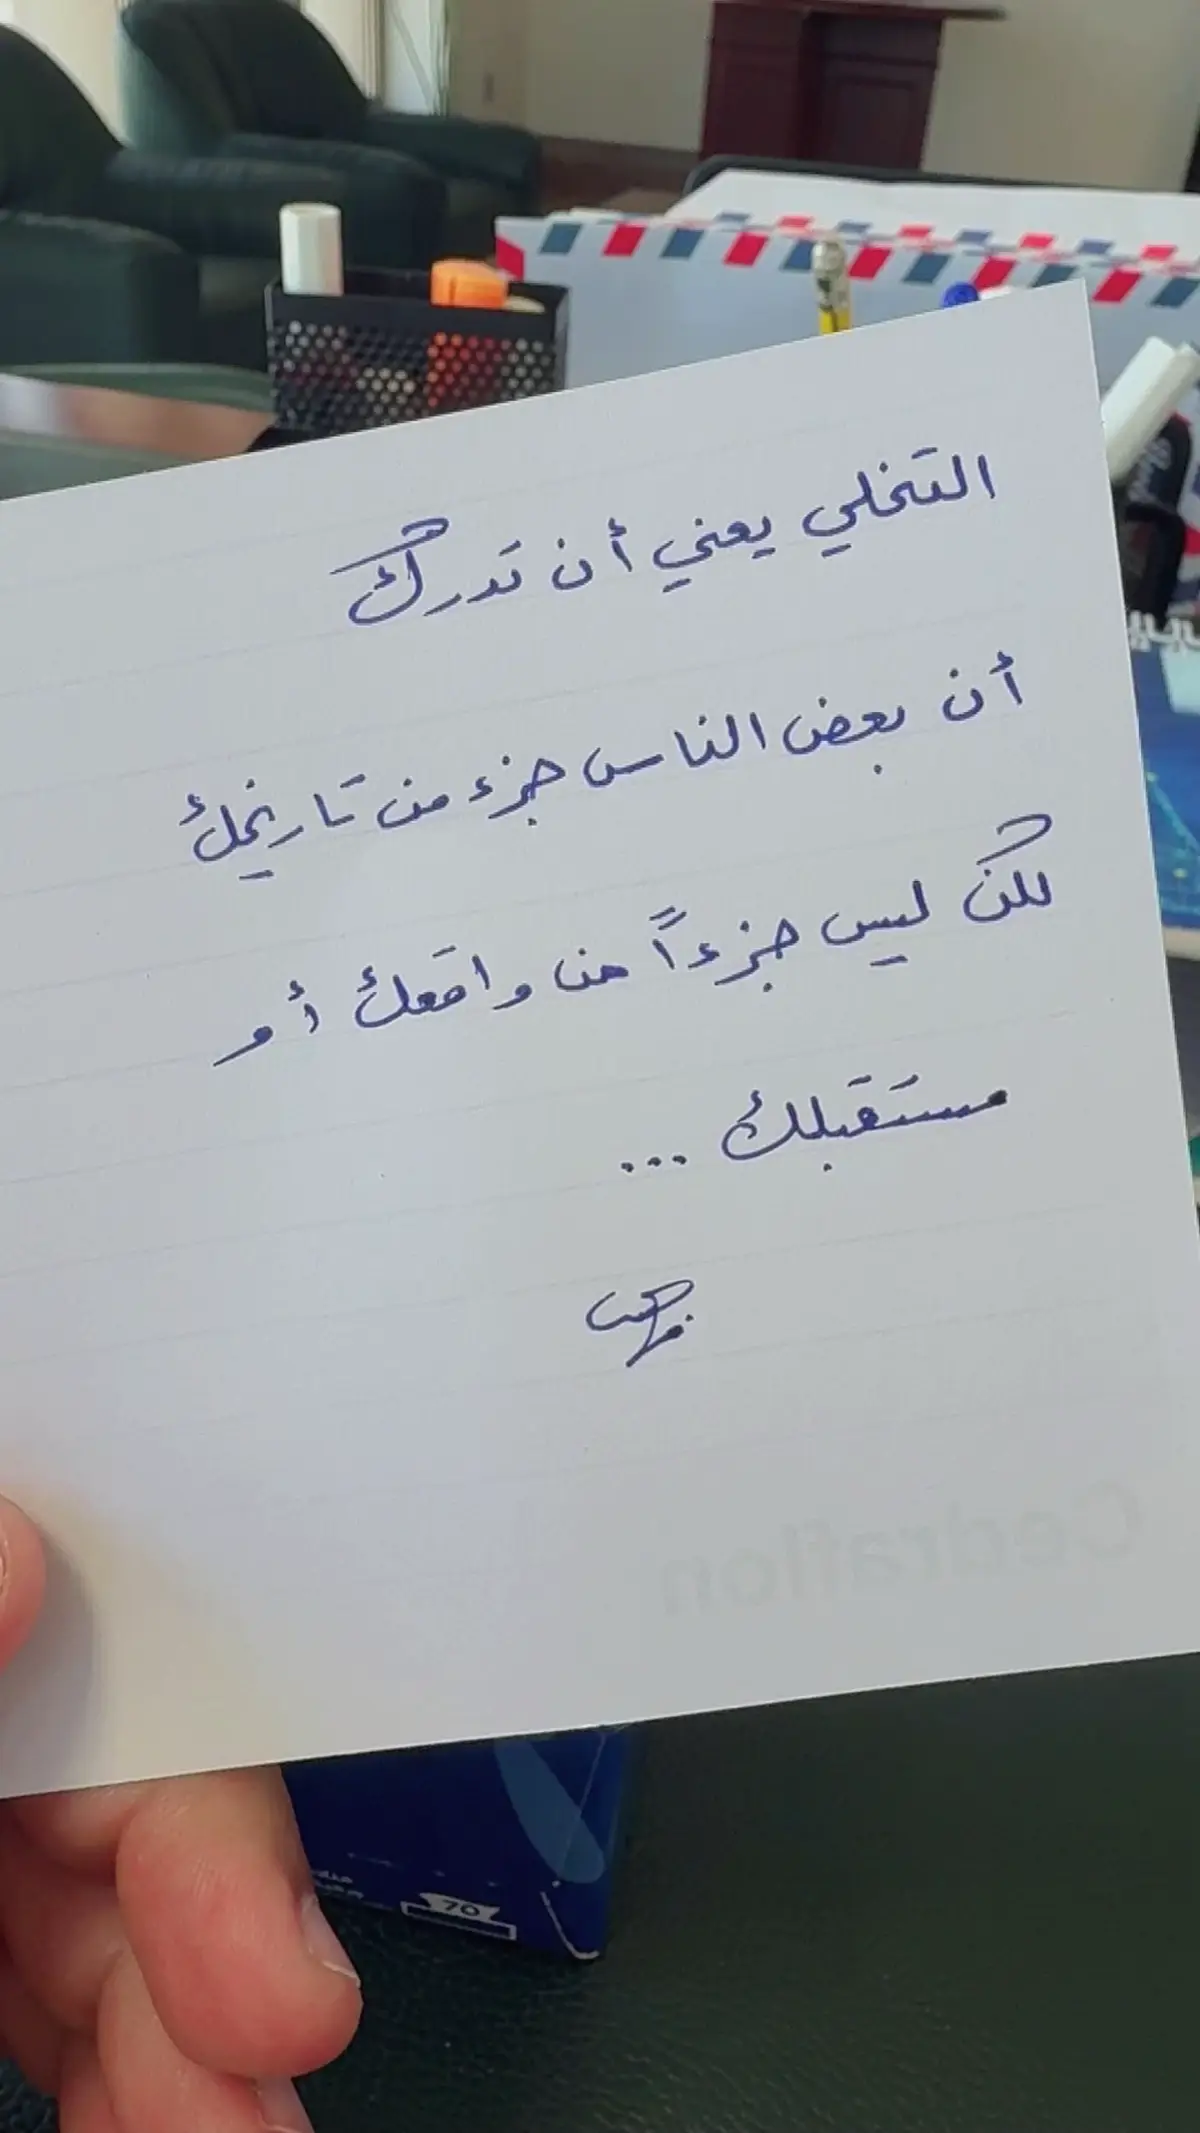 التخلي يعني أن تدرك
أن بعض الناس جزء من تاريخك
لكن ليس جزءاً من واقعك أو
مستقبلك ...
Cedraflon
70